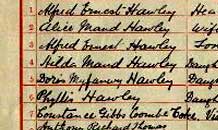 1 Alfred Ernest Hawley Hea
2 Alice Maud Hawley Wife
3 Alfred Ernest Hawley Son
4 Hilda Maud Hawley Daugh
5 Doris Myfanwy Hawley Daugh
6 Phyllis Hawley Daugh
Constance Gibbs Coombe
Anthony Richard Thomas